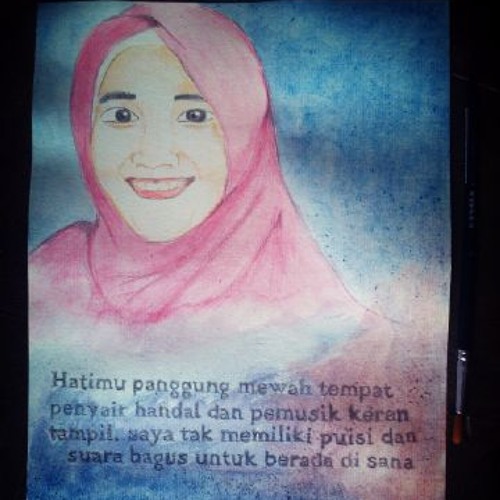 Hatimu panggung mewah tempat
penyair handal dan pemusik keren
tampil. saya tak memiliki puisi dan
suara bagus untuk berada di sana